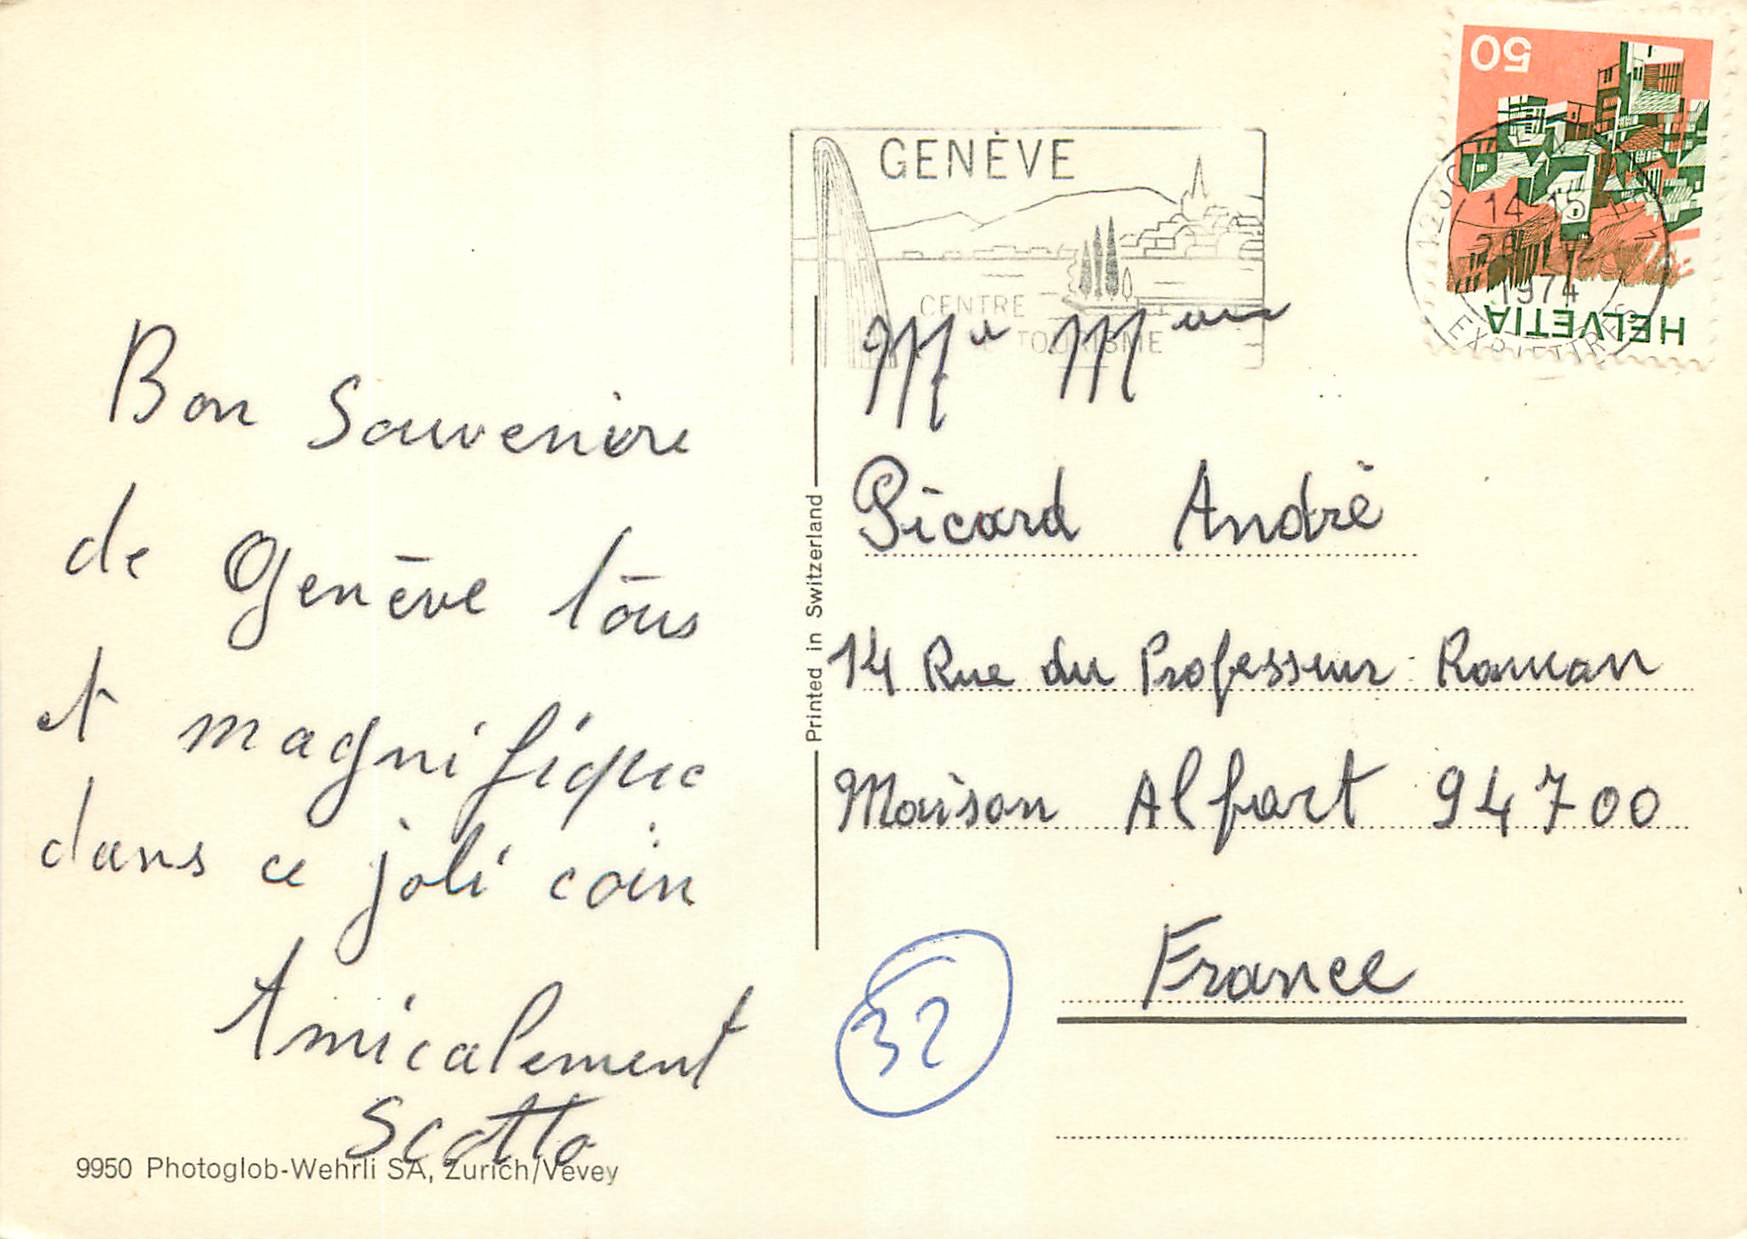 Bon Souvenire
de Genève tous
et magnifique
dans ce joli coin
Amicalement
Scotto
9950 Photoglob-Wehrli SA, Zurich/Vevey
Printed in Switzerland
GENÈVE
CENTRE
TOURISME
50
HELVETIA
14-15
1974
EXP. LETTRES
Mr Mme
Picard André
14 Rue du Professeur Raman
Maison Alfort 94700
France
32